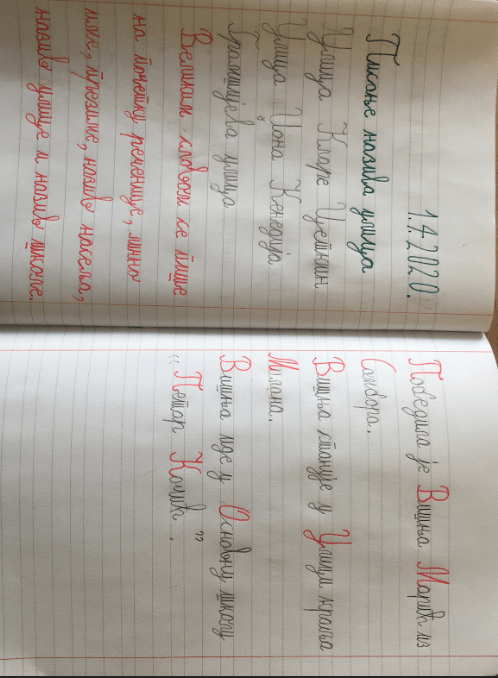 1.4.2020.
Писање назива улица
Улица Кларе Цеткин
Улица Џона Кенедија
Грамшијева улица
Великим словом се пише
на почетку реченице, лично
име, презиме, назив насеља,
назив улице и назив школе.
Победила је Вишња Марић из
Сомбора.
Вишња станује у Улици краља
Милана.
Вишња иде у Основну школу
„Петар Кочић”.